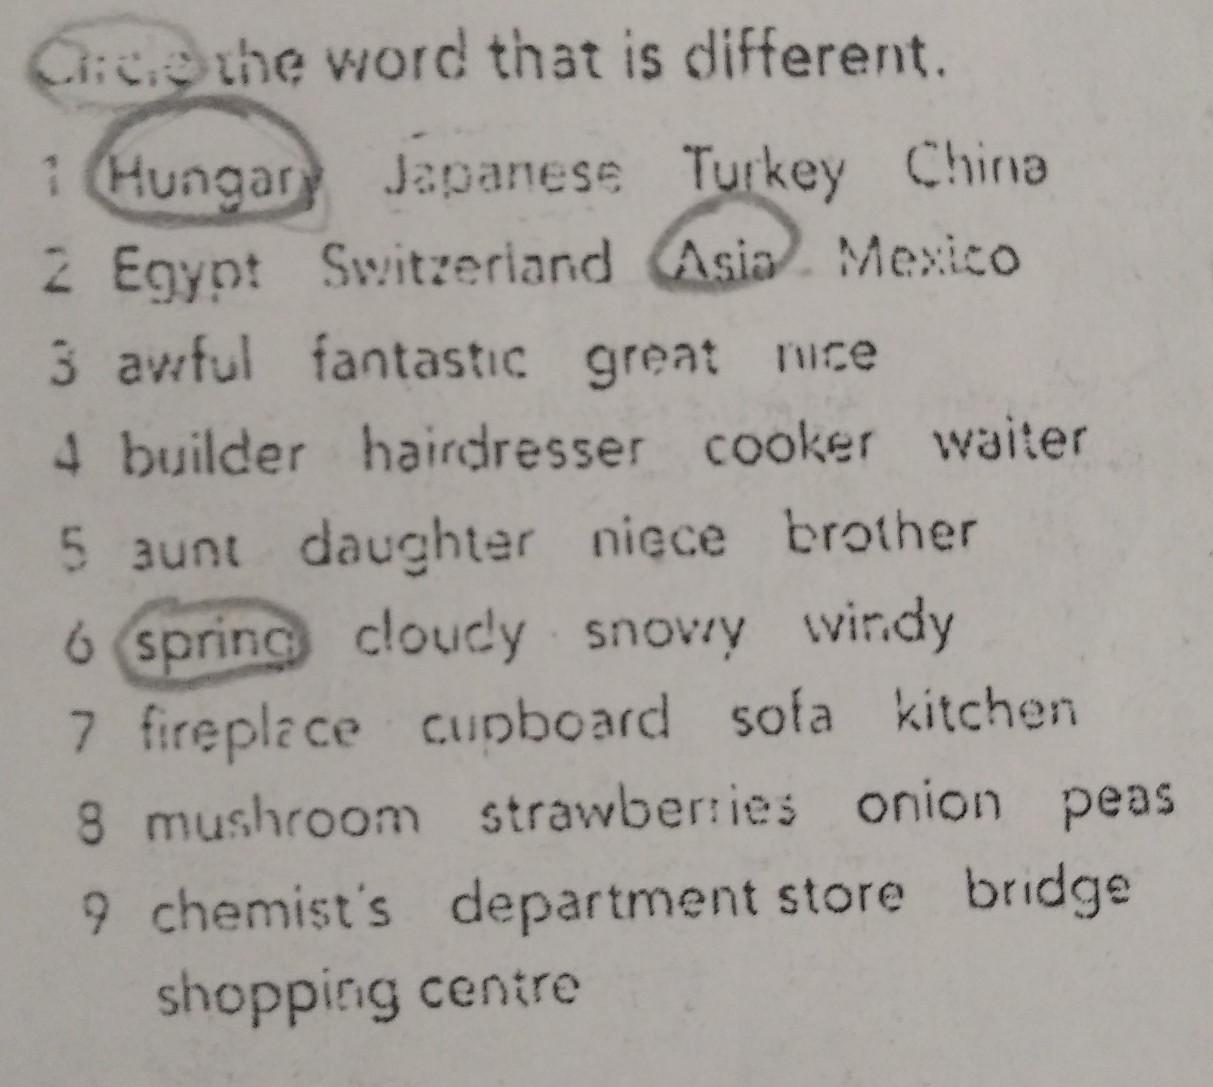 Circle the word that is different.
1 Hungary Japanese Turkey China
2 Egypt Switzerland Asia Mexico
3 awful fantastic great nice
4 builder hairdresser cooker waiter
5 aunt daughter niece brother
6 spring cloudy snowy windy
7 fireplace cupboard sofa kitchen
8 mushroom strawberries onion peas
9 chemist's department store bridge
shopping centre